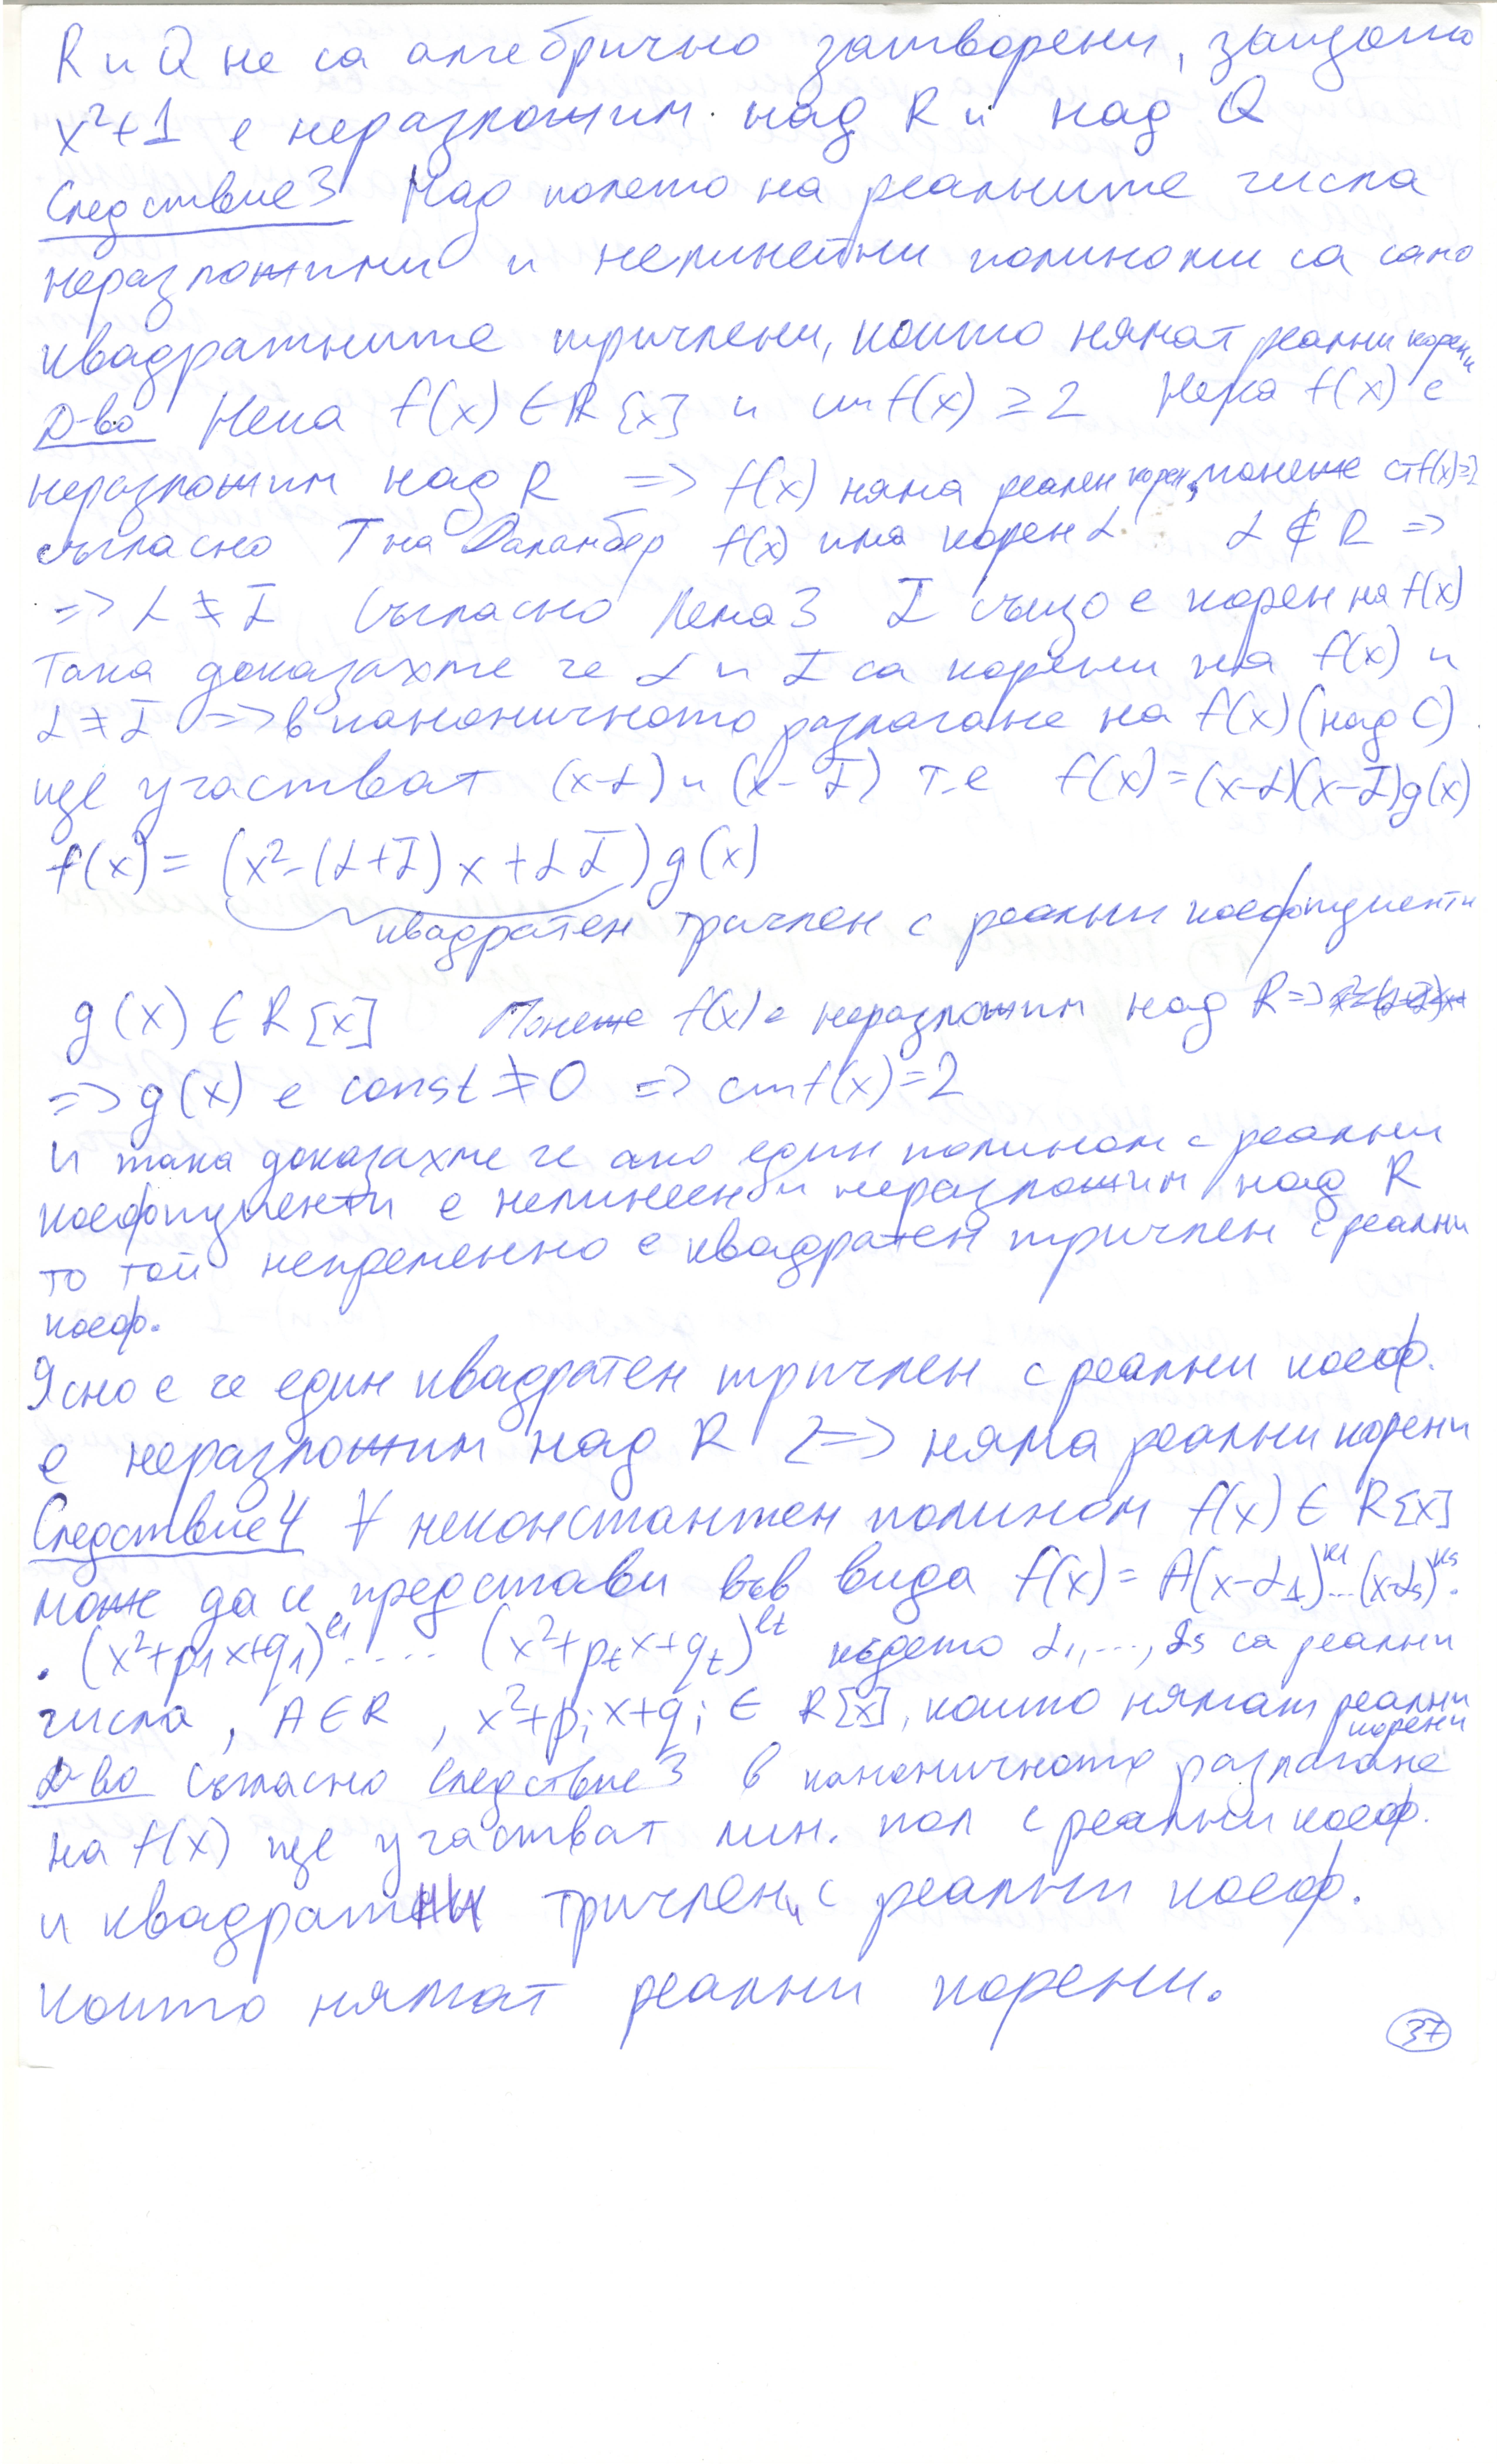 R и Q не са алгебрично затворени, защото
x²+1 е неразложим над R и над Q
Следствие 3 Над полето на реалните числа
неразложими и нелинейни полиноми са само
квадратните тричлени, които нямат реални корени
Д-во Нека f(x) ∈ R[x] и ст f(x) ≥ 2 Нека f(x) е
неразложим над R => f(x) няма реален корен, понеже ст f(x) ≥ 2
съгласно Т на Даламбер f(x) има корен α α ∉ R =>
=> α ≠ ᾱ Съгласно Лема 3 ᾱ също е корен на f(x)
Така доказахме че α и ᾱ са корени на f(x) и
α ≠ ᾱ => в каноничното разлагане на f(x) (над C)
ще участват (x-α) и (x-ᾱ) т.е f(x) = (x-α)(x-ᾱ)g(x)
f(x) = (x²-(α+ᾱ)x+αᾱ)g(x)
квадратен тричлен с реални коефициенти
g(x) ∈ R[x] Понеже f(x) е неразложим над R =>
=> g(x) е const ≠ 0 => ст f(x) = 2
И така доказахме че ако един полином с реални
коефициенти е нелинеен и неразложим над R
то той непременно е квадратен тричлен с реални
коеф.
Ясно е че един квадратен тричлен с реални коеф.
е неразложим над R <=> няма реални корени
Следствие 4 ∀ неконстантен полином f(x) ∈ R[x]
може да се представи във вида f(x) = A(x-α₁)^k₁...(x-αs)^ks.
.(x²+p₁x+q₁)^l₁.....(x²+p_t x+q_t)^lt където α₁,...,αs са реални
числа, A ∈ R, x²+p_i x+q_i ∈ R[x], които нямат реални корени
Д-во Съгласно Следствие 3 в каноничното разлагане
на f(x) ще участват лин. пол с реални коеф.
и квадратни тричлени с реални коеф.
които нямат реални корени.
37